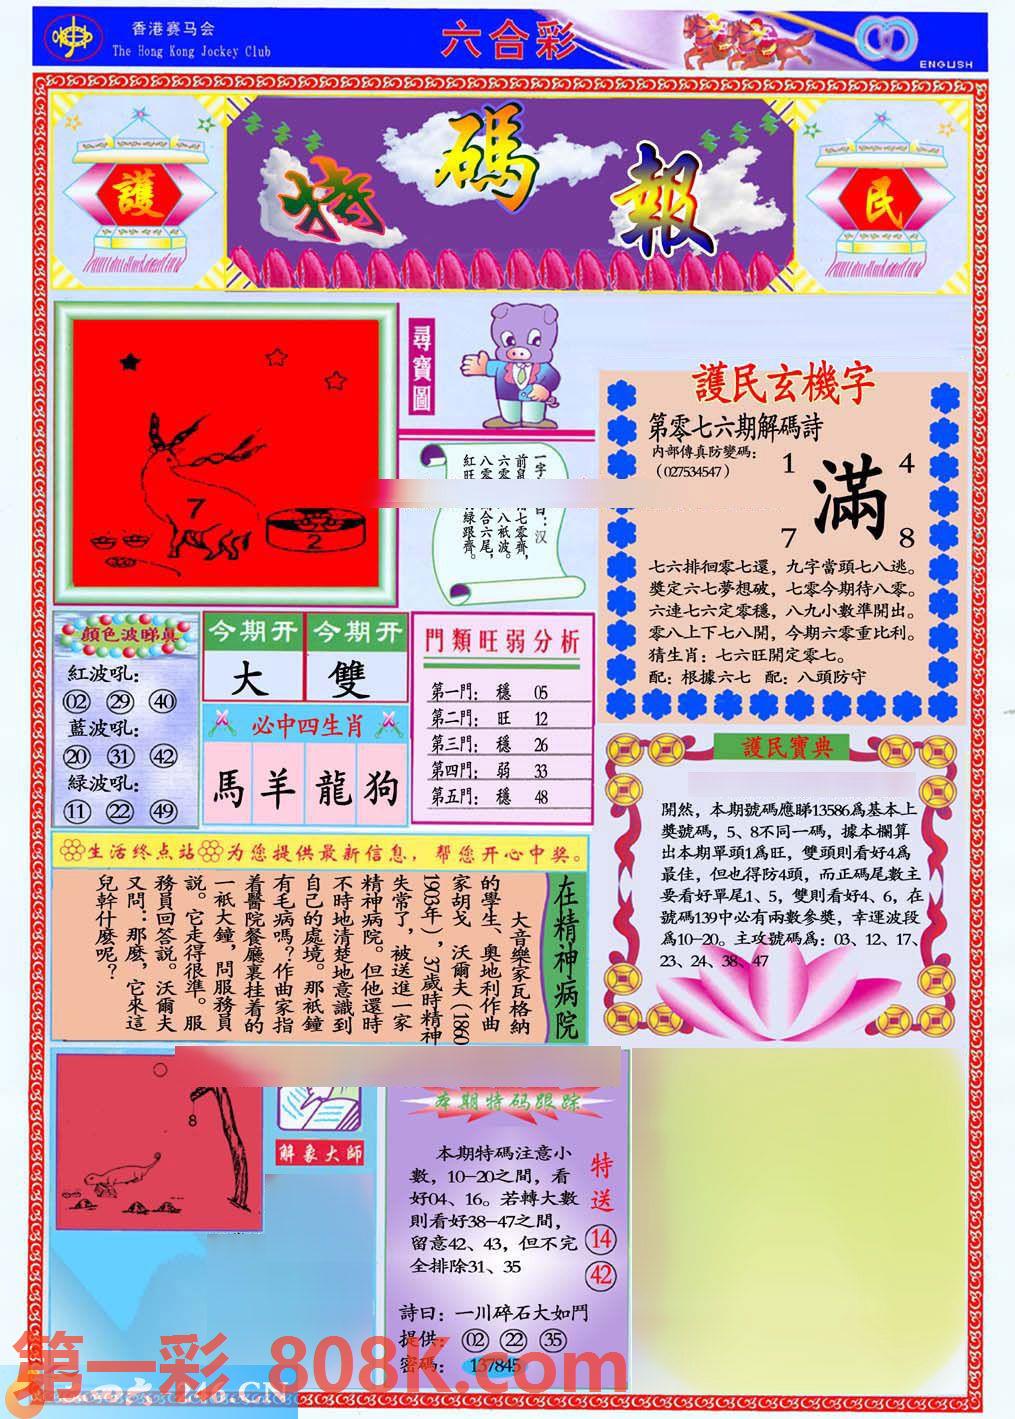 香港赛马会
The Hong Kong Jockey Club
六合彩
ENGLISH
護
特碼報
民
尋寶圖
7
2
護民玄機字
第零七六期解碼詩
内部傳真防變碼：
（027534547）
1
4
滿
7
8
七六排徊零七還，九字當頭七八逃。
獎定六七夢想破，七零今期待八零。
六連七六定零穩，八九小數準開出。
零八上下七八開，今期六零重比利。
猜生肖：七六旺開定零七。
配：根據六七 配：八頭防守
顔色波睇真
紅波吼：
02 29 40
藍波吼：
20 31 42
綠波吼：
11 22 49
今期开 今期开
大 雙
必中四生肖
馬 羊 龍 狗
門類旺弱分析
第一門： 穩 05
第二門： 旺 12
第三門： 穩 26
第四門： 弱 33
第五門： 穩 48
護民寶典
開然，本期號碼應睇13586爲基本上
獎號碼，5、8不同一碼，據本欄算
出本期單頭1爲旺，雙頭則看好4爲
最佳，但也得防4頭，而正碼尾數主
要看好單尾1、5，雙則看好4、6，在
號碼139中必有兩數參獎，幸運波段
爲10-20。主攻號碼爲：03、12、17、
23、24、38、47
生活终点站 为您提供最新信息，帮您开心中奖。
在精神病院
大音樂家瓦格納
的學生、奥地利作曲
家胡戈 沃爾夫（1860
1903年），37歲時精神
失常了，被送進一家
精神病院。但他還時
不時地清楚地意識到
自己的處境。那衹鐘
有毛病嗎？作曲家指
着醫院餐廳裏挂着的
一衹大鐘，問服務員
説。它走得很準。服
務員回答説。沃爾夫
又問：那麽，它來這
兒幹什麽呢？
8
解象大師
本期特码跟踪
本期特碼注意小
數，10-20之間，看
好04、16。若轉大數
則看好38-47之間，
留意42、43，但不完
全排除31、35
特送
14
42
詩曰：一川碎石大如鬥
提供： 02 22 35
密碼： 137845
第一彩 808K.com